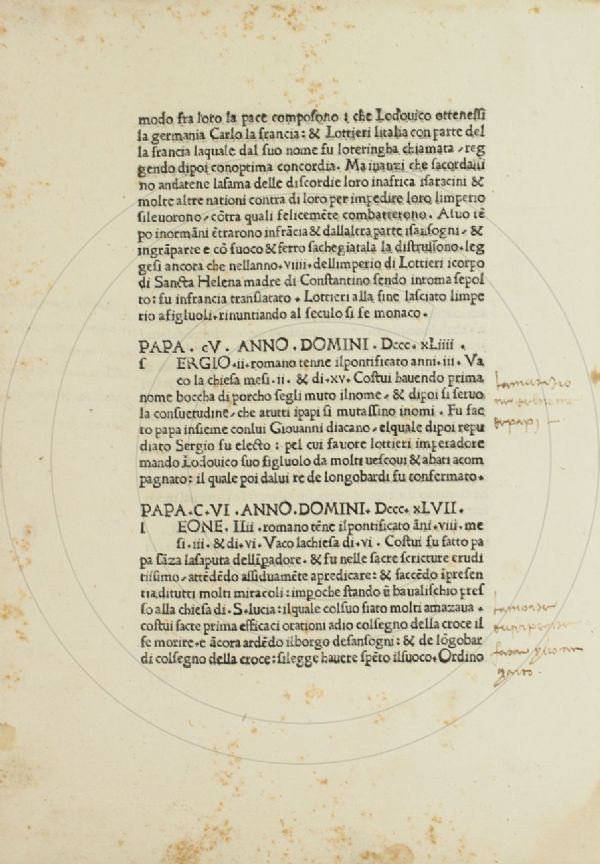 modo fra loro la pace composono ; che Lodouico ottenessi
la germania Carlo la francia: & Lottieri litalia con parte del
la francia laquale dal suo nome fu loteringha chiamata, reg
gendo dipoi conoptima concordia. Ma inanzi che sacordassi
no andatene lafama delle discordie loro inafrica isaracini &
molte altre nationi contra di loro per impedire loro limperio
sileuorono, cõtra quali felicemẽte combatterono. Alsuo tẽ
po inormãni ẽtrarono infrãcia & dallaltra parte isansogni, &
ingrãparte e cõ fuoco & ferro sachegiatala la distrussono. leg
gesi ancora che nellanno. viiii. dellimperio di Lottieri icorpo
di Sancta Helena madre di Constantino sendo inroma sepol
to: fu infrancia translatato. Lottieri alla fine lasciato limpe
rio afigluoli, rinuntiando al seculo si fe monaco.
PAPA. cV. ANNO. DOMINI. Dccc. xLiiii.
f ERGIO.ii. romano tenne ilpontificato anni. iii. Va
co la chiesa mesi. ii. & di. xv. Costui hauendo prima
nome boccha di porcho segli muto ilnome, & dipoi si seruo
la consuetudine, che atutti ipapi si mutassino inomi. Fu fac
to papa insieme conlui Giouanni diacano, elquale dipoi repu
diato Sergio fu electo: pel cui fauore lottieri imperadore
mando Lodouico suo figluolo da molti uescoui & abati acom
pagnato: il quale poi dalui re de longobardi fu confermato.
PAPA. C. VI. ANNO. DOMINI. Dccc. xLVII.
l EONE. IIii. romano tẽne ilpontificato ãni. viii. me
si. iii. & di. vi. Vaco lachiesa di. vi. Costui fu fatto pa
pa sãza lasaputa dellĩpadore. & fu nelle sacre scricture erudi
tissimo, attẽdẽdo assiduamẽte apredicare: & faccẽdo ĩpresen
tia ditutti molti miracoli: impoche stando ũ baualischio pres
so alla chiesa di. S. lucia: ilquale colsuo fiato molti amazaua.
costui facte prima efficaci orationi adio colsegno della croce il
fe morire. e ãcora ardẽdo ilborgo desansogni: & de lõgobar
di colsegno della croce: silegge hauere spẽto ilfuoco. Ordino